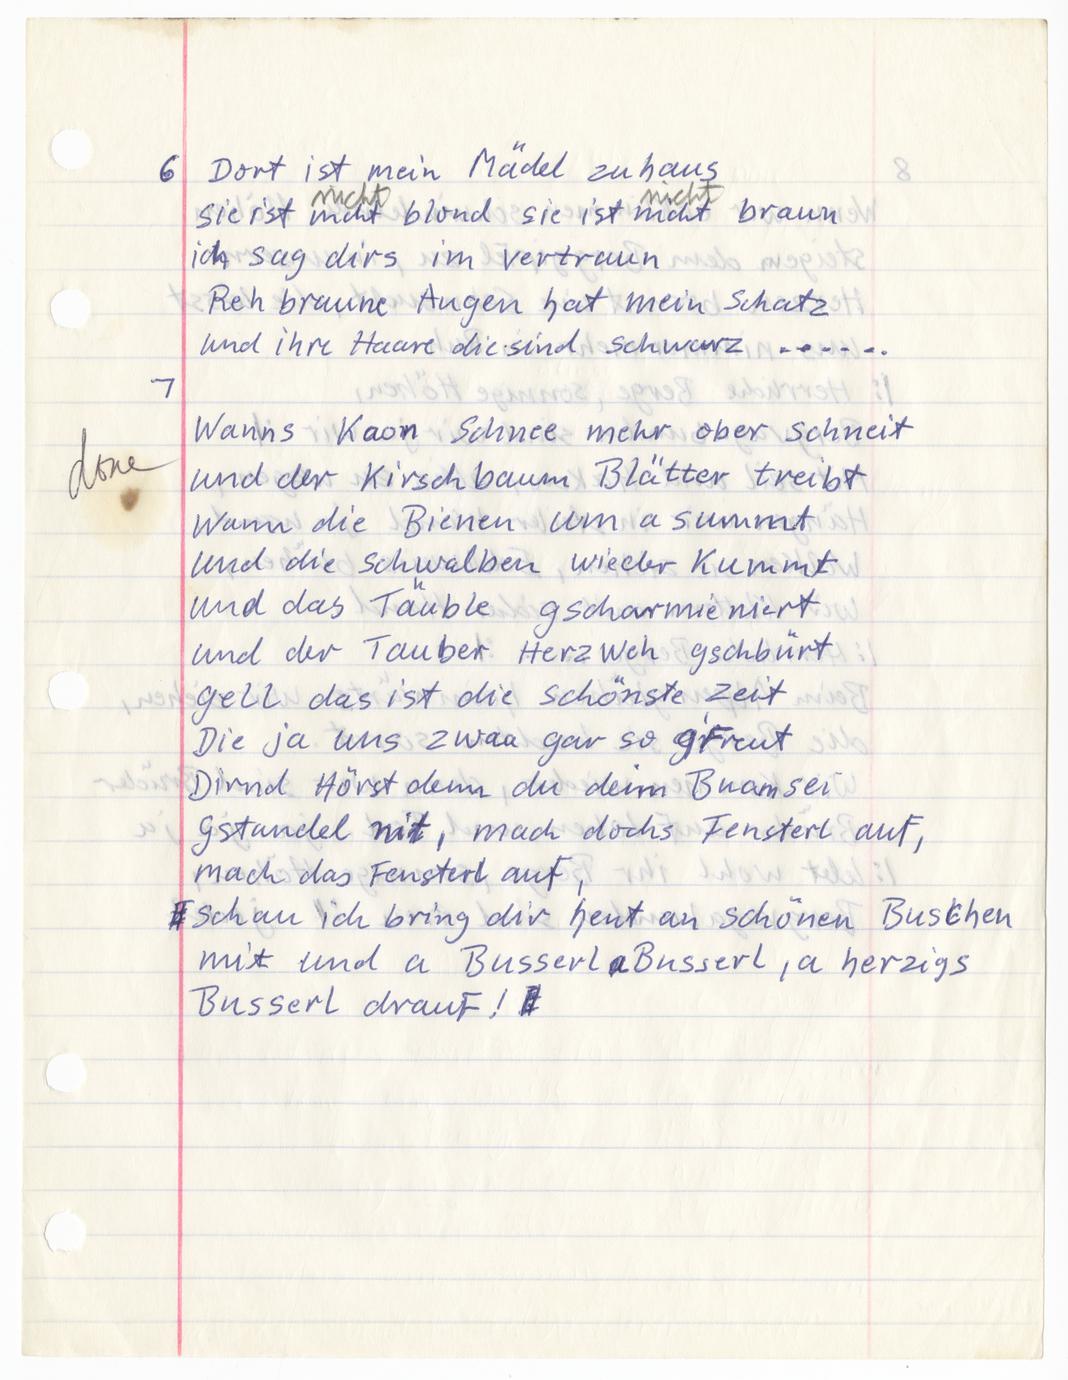 6 Dort ist mein Mädel zuhaus
nicht nicht
sie ist nicht blond sie ist nicht braun
ich sag dirs im vertraun
Reh braune Augen hat mein Schatz
und ihre Haare die sind schwarz ......
7
Wanns Kaon Schnee mehr ober schneit
und der Kirschbaum Blätter treibt
Wann die Bienen um a summt
und die schwalben wieder Kummt
und das Täuble gscharmieniert
und der Tauber Herz Weh gschbürt
done
gell das ist die schönste Zeit
Die ja uns zwaa gar so g'freut
Dirnd Hörst denn du deim Buam sei
gstandel nit, mach dochs Fensterl auf,
mach das Fensterl auf,
schau ich bring dir heut an schönen Buschen
mit und a Busserl a Busserl, a herzigs
Busserl drauf!